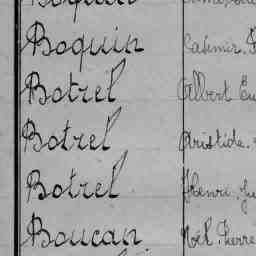 Boquin Casimir
Botrel Albert
Botrel Aristide
Botrel Henri
Boucan Pierre